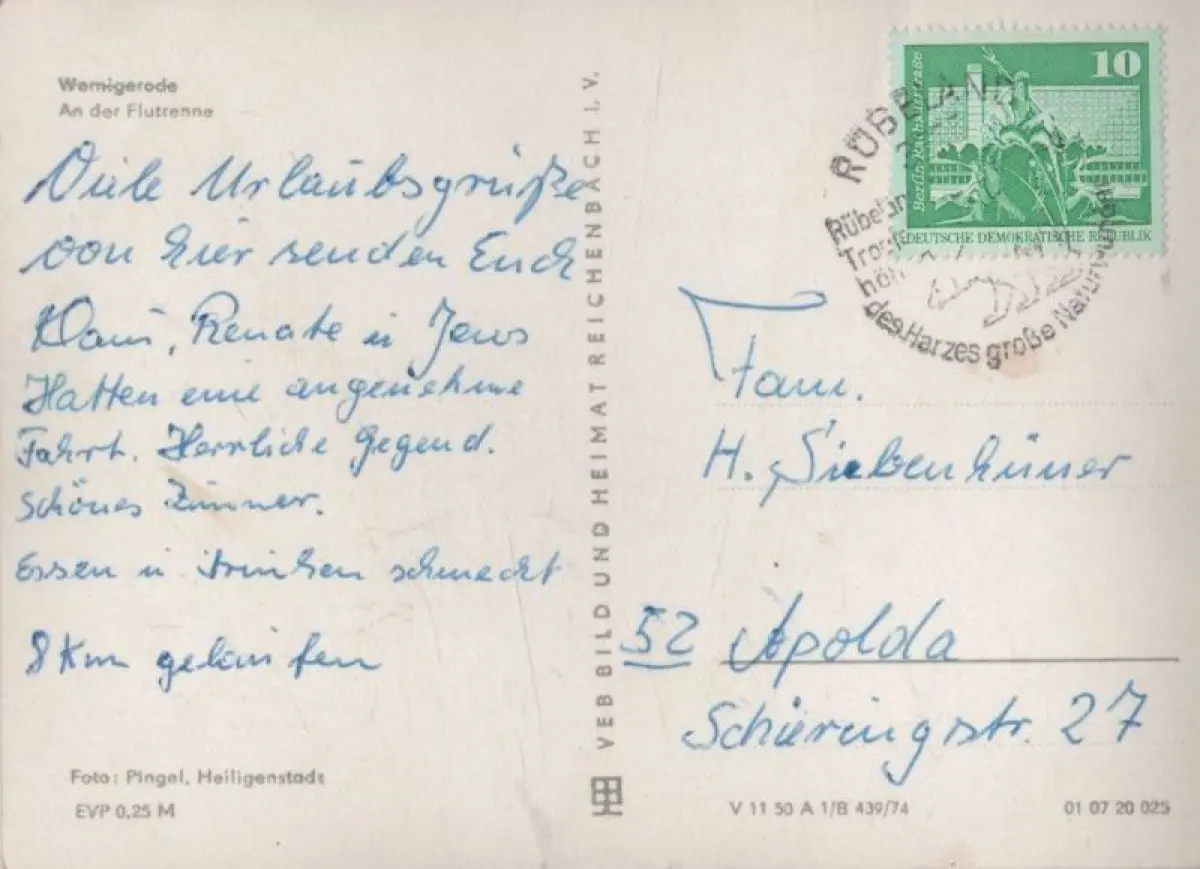 Wernigerode
An der Flutrenne
Viele Urlaubsgrüße
von hier senden Euch
Klaus, Renate u Jens
Hatten eine angenehme
Fahrt. Herrliche Gegend.
Schönes Zimmer.
Essen u trinken schmeckt
8 Km gelaufen
Foto: Pingel, Heiligenstadt
EVP 0,25 M
VEB BILD UND HEIMAT REICHENBACH I. V.
10
Berlin Rathausstraße
DEUTSCHE DEMOKRATISCHE REPUBLIK
RÜBELAND
des Harzes große Naturwunder
Fam.
H. Siebenhüner
52 Apolda
Schieringstr. 27
V 11 50 A 1/B 439/74
01 07 20 025